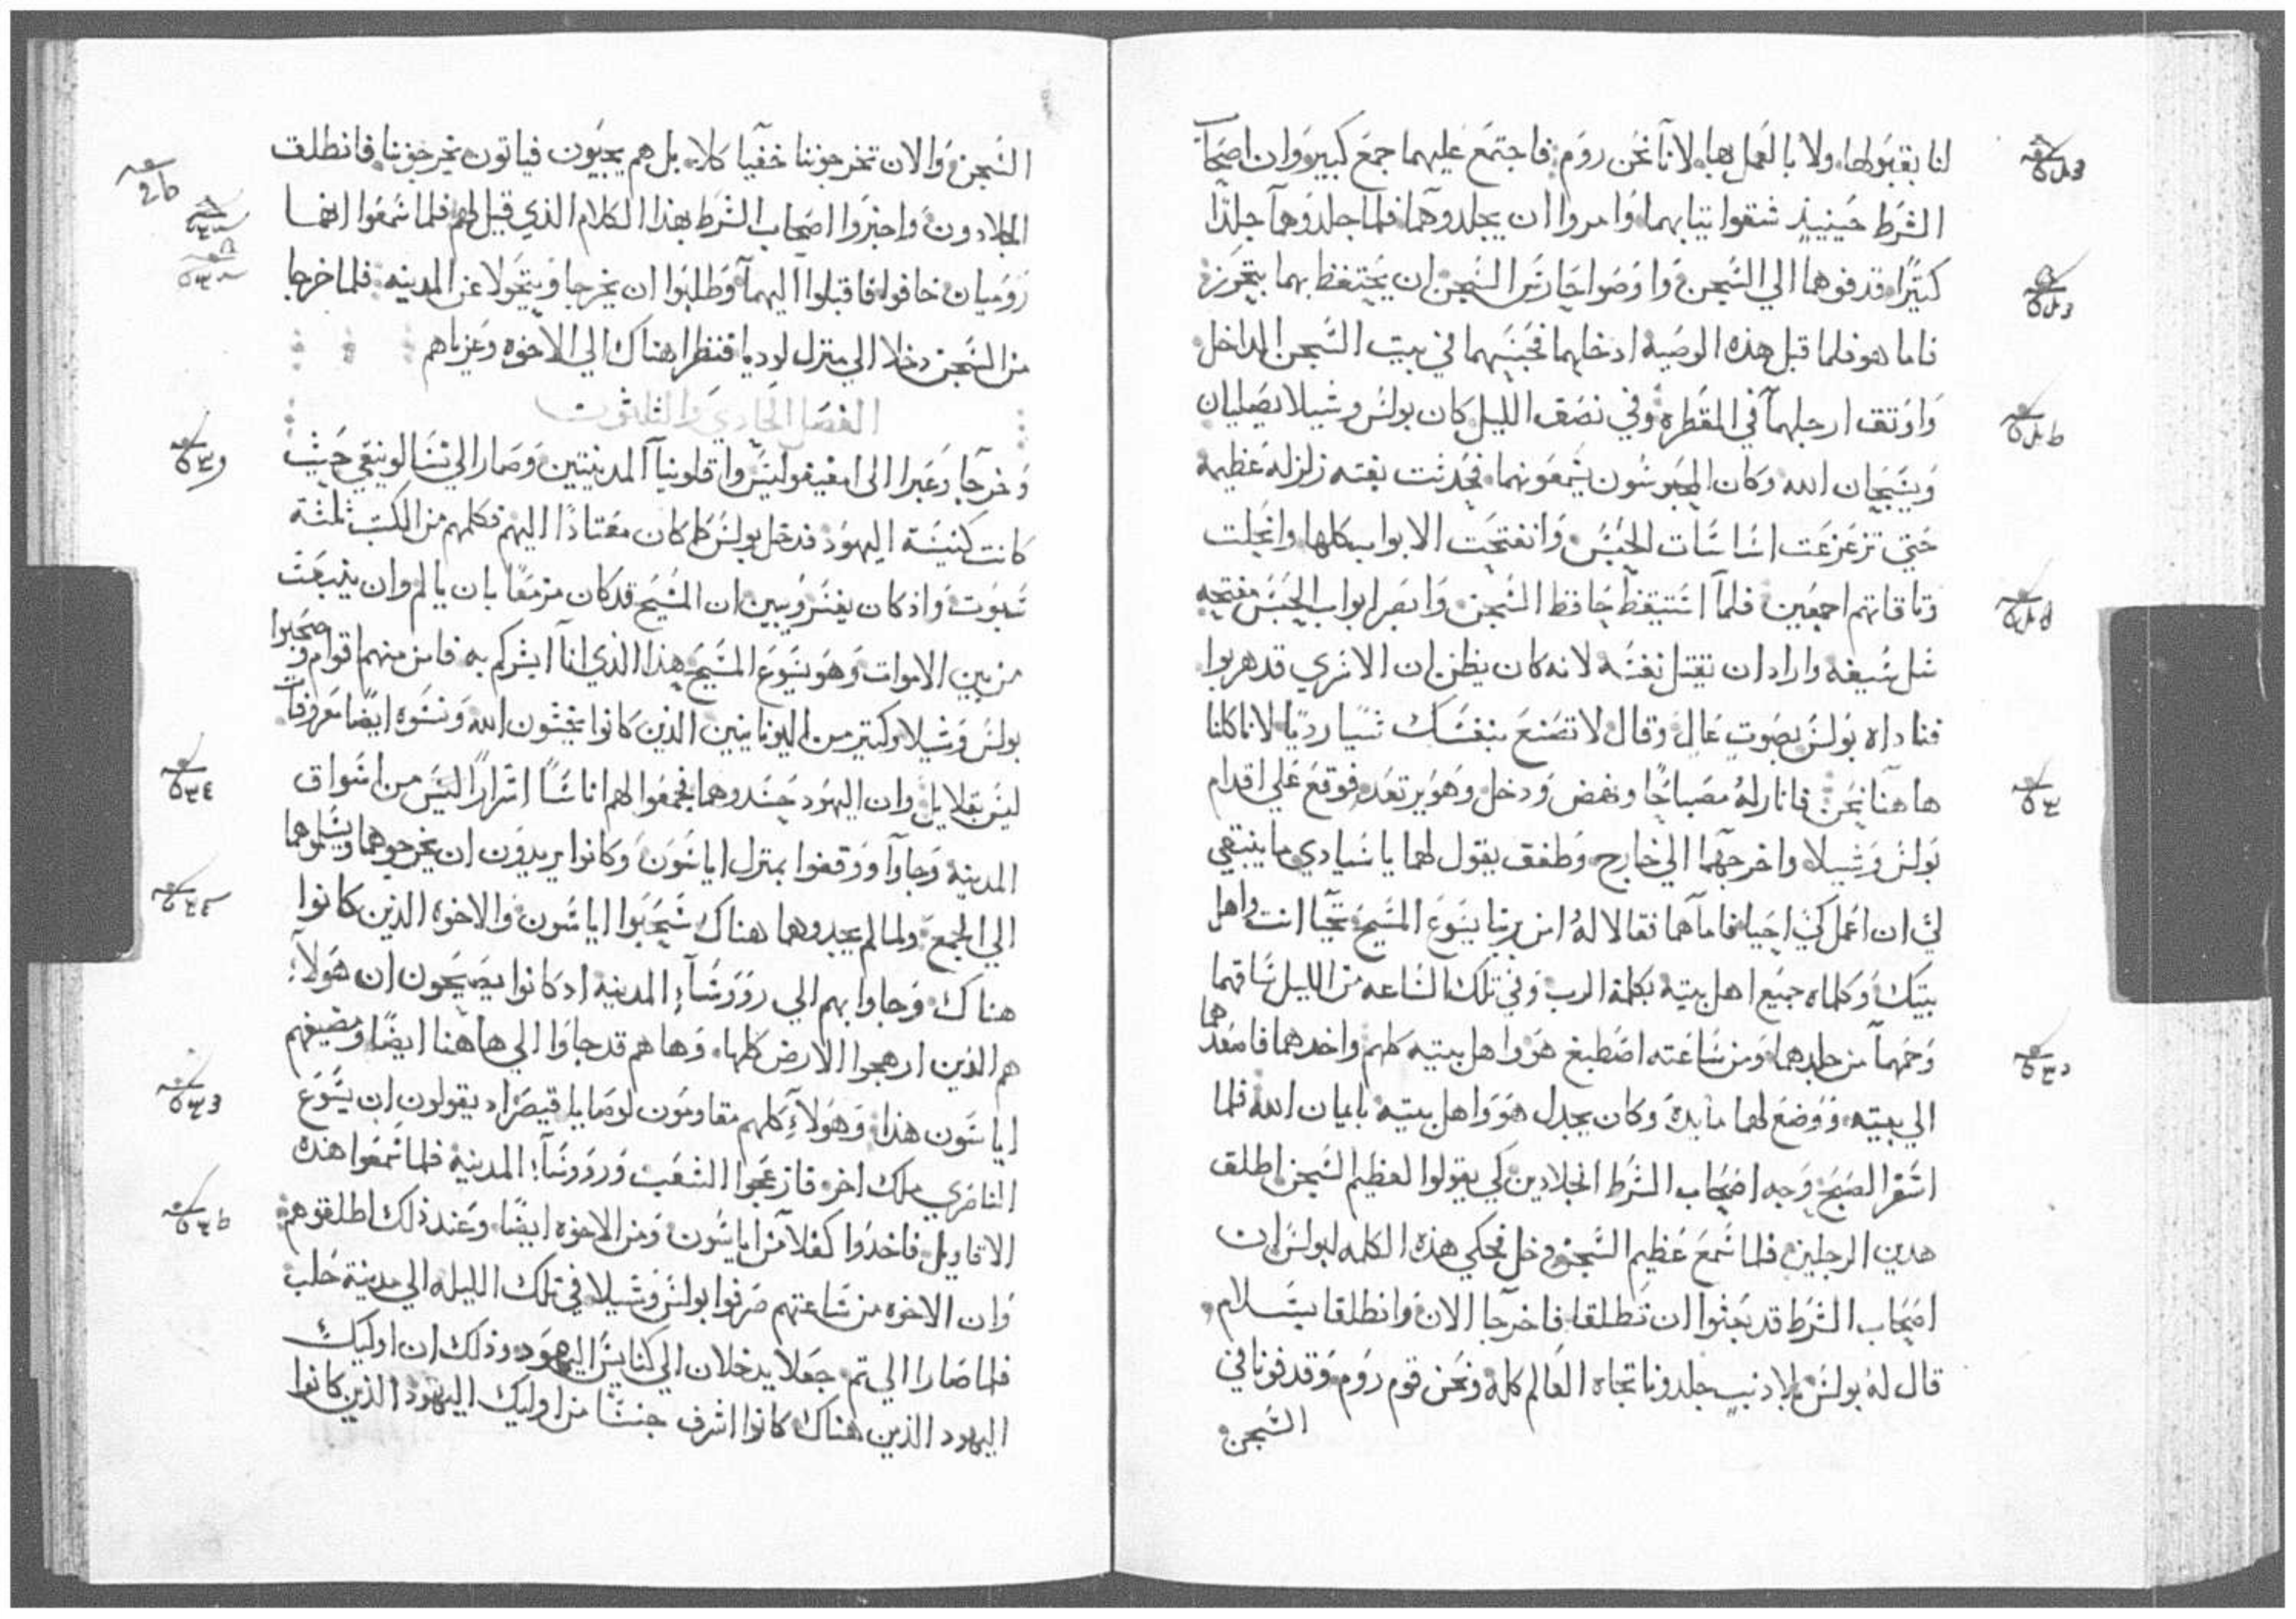 لنا بقبولها ولا بالعمل بها لاننا نحن روم فاجتمع عليهما جمع كبير وان اصحاب
الشرط حينيذ شقوا ثيابهما وامروا ان يجلدوهما فلما جلدوهما جلدًا
كثيرًا قدفوهما الي السجن واوصوا حارس السجن ان يحتفظ بهما بتحرز
فاما هو فلما قبل هذه الوصيه ادخلهما فحبسهما في بيت السجن الداخل
واوثق ارجلهما في المقطره وفي نصف الليل كان بولس وشيلا يصليان
ويسبحان الله وكان المحبوسون يسمعونهما فحدثت بغته زلزله عظيمه
حتي تزعزعت اساسات الحبس وانفتحت الابواب كلها وانحلت
وثاقاتهم اجمعين فلما استيقظ حافظ السجن وابصر ابواب الحبس مفتحه
سل سيفه واراد ان يقتل نفسه لانه كان يظن ان الاسري قد هربوا
فناداه بولس بصوت عال وقال لا تصنع بنفسك شيا رديا لانا كلنا
هاهنا نحن فانار له مصباحًا ونهض ودخل وهو يرتعد فوقع علي اقدام
بولس وشيلا واخرجهما الي خارج وطفق يقول لهما يا سيادي ما ينبغي
لي ان اعمل كي احيا فاما هما فقالا له امن بربنا يسوع المسيح تحيا انت واهل
بيتك وكلماه جميع اهل بيته بكلمة الرب وفي تلك الساعه من الليل ساقهما
وحمهما من جلدهما ومن ساعته اصطبغ هو واهل بيته كلهم واخدهما فاصعدهما
الي بيته ووضع لهما مايدة وكان يجدل هو واهل بيته بايمان الله فلما
اسفر الصبح وجه اصحاب الشرط الجلادين كي يقولوا لعظيم السجن اطلق
هدين الرجلين فلما سمع عظيم السجن دخل فحكي هذه الكلمه لبولس ان
اصحاب الشرط قد بعثوا ان تطلقا فاخرجا الان وانطلقا بسلام
قال له بولس بلا دنب جلدونا تجاه العالم كله ونحن قوم روم وقدفونا في
السجن
السجن والان تخرجوننا خفيا كلا بل هم يجيون فياتون يخرجوننا فانطلق
الجلادون واخبروا اصحاب الشرط بهذا الكلام الذي قيل لهم فلما سمعوا انهما
روميان خافوا فاقبلوا اليهما وطلبوا ان يخرجا ويتحولا عن المدينه فلما خرجا
من السجن دخلا الي منزل لوديا فنظرا هناك الي الاخوه وعزياهم
الفصل الحادي والثلثون
وخرجا وعبرا الي امفيفوليس وافلونيا المدينتين وصارا الي تسالونيقي حيث
كانت كنيسة اليهود فدخل بولس كما كان معتادًا اليهم فكلمهم من الكتب ثلثة
سبوت واذ كان يفسر ويبين ان المسيح قد كان مزمعًا بان يالم وان ينبعث
من بين الاموات وهو يسوع المسيح هذا الذي انا ابشركم به فامن منهم اقوام وصحبوا
بولس وشيلا وكثير من اليونانيين الذين كانوا يخشون الله ونسوه ايضًا معروفات
ليس بقلايل وان اليهود حسدوهما فجمعوا لهم اناسًا اشرارًا ليس من اسواق
المدينه وجاوا ووقفوا بمنزل اياسون وكانوا يريدون ان يخرجوهما ويسلموهما
الي الجمع ولما لم يجدوهما هناك سحبوا اياسون والاخوه الذين كانوا
هناك وجاوا بهم الي رووسآء المدينه اد كانوا يصيحون ان هولآء
هم الذين ارهجوا الارض كلها وها هم قد جاوا الي هاهنا ايضًا ومضيفهم
اياسون هذا وهولآء كلهم مقاومون لوصايا قيصر اد يقولون ان يسوع
الناصري ملك اخر فازعجوا الشعب ورووسآء المدينه فلما سمعوا هذه
الاقاويل فاخدوا كفلآ من اياسون ومن الاخوه ايضًا وعند ذلك اطلقوهم
وان الاخوه من ساعتهم صرفوا بولس وشيلا في تلك الليله الي مدينة حلب
فلما صارا الي ثم جعلا يدخلان الي كنايس اليهود وذلك ان اوليك
اليهود الذين هناك كانوا اشرف جنسًا من اوليك اليهود الذين كانوا